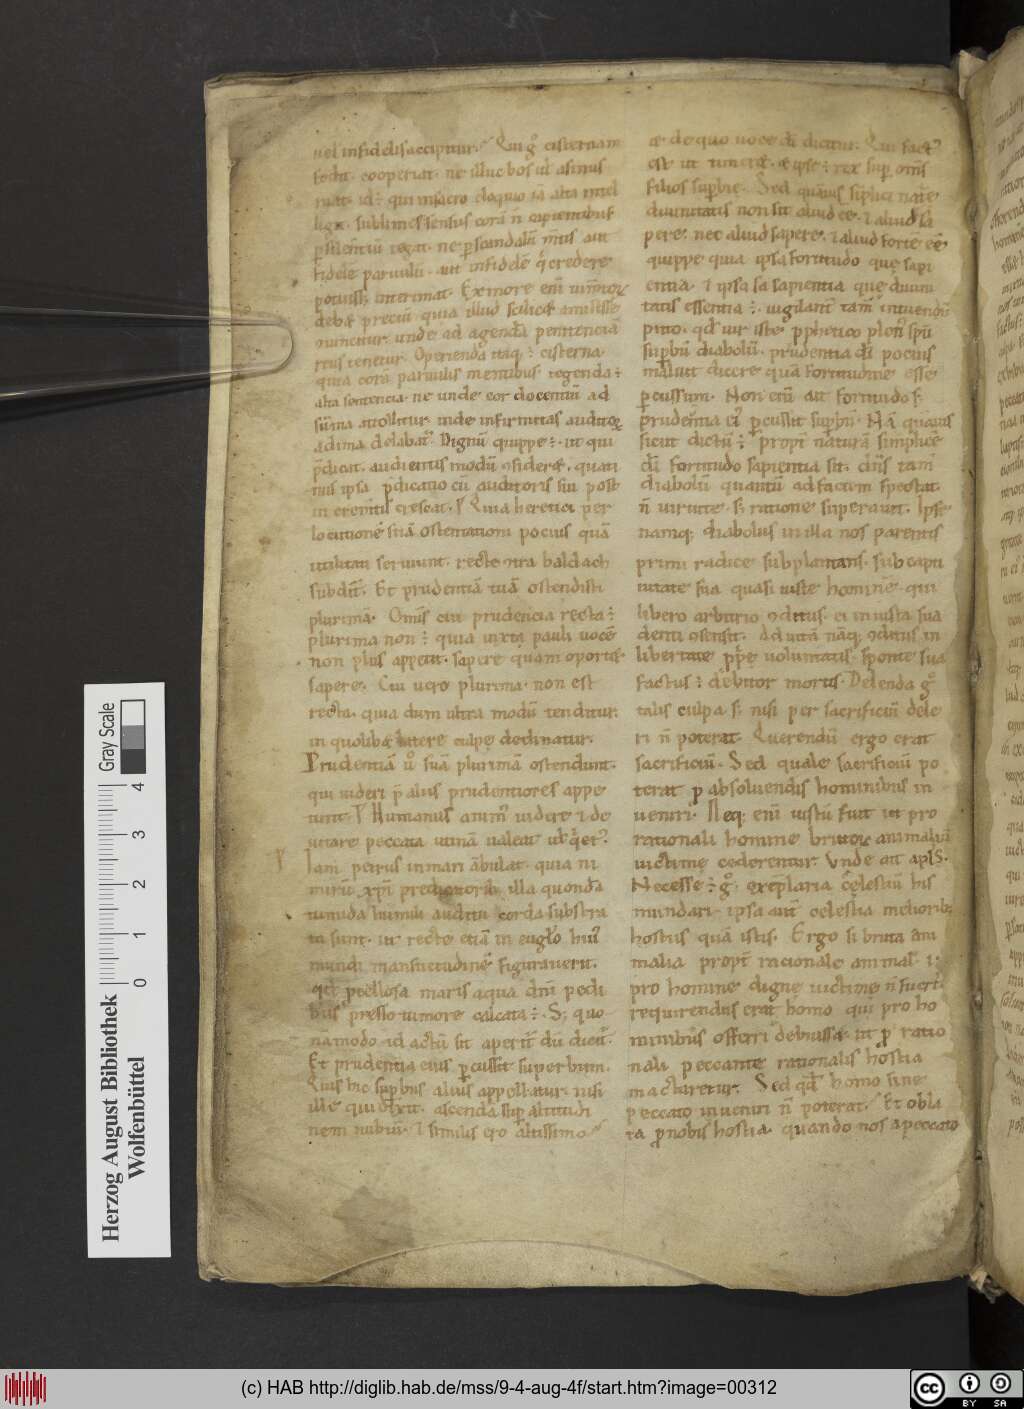 uel infidelis accipitur. Qui gͦ cisternam
fodit. cooperiat. ne illuc bos ul asinus
ruat. id ÷ qui in sacro eloquio iā alta intel
ligit. sublimes sensus corā n̄ capientibus
fidele paruulū. aut infidelē q̇ credere
potuiss& interimat. Ex more enī
deb& preciū. quia illud scilic&
conuincitur. unde ad agendā penitenciā
reus tenetur. Operienda itaq; ÷ cisterna.
quia corā paruulis mentibus tegenda ÷
alta sententia. ne unde cor docentiū ad
sūma attollitur. inde infirmitas auditoꝝ
ad ima delabat᷑. Dignū quippe ÷. ut qui
p̄dicat. audientis modū ꝯsider&. quati
nus ipsa p̄dicatio cū auditoris sui post
incrementū crescat. Quia heretici per
locutionē suā ostentationi pocius quā
utilitati seruiunt. recte ꝯtra baldach
subdit᷑. Et prudentiā tuā ostendisti
plurimā. Omīs cui prudencia recta ÷
plurima non ÷ quia iuxta pauli uocē
non plus appetit. sapere quam oport&
sapere. Cui uero plurima. non est
recta. quia dum ultra modū tenditur.
in quolib& latere culpę declinatur.
Prudentiā uͦ sua plurimā ostendunt.
qui uideri p̄ aliis prudentiores appe
tunt. Humanus anim᷒ uidere & de
uitare peccata utinā ualeat
Iam petrus in mari ābulat. quia ni
mirū xp̄i predicatorib; illa quondā
tumida humili auditu corda substra
ta sunt. ut recte etiā in eugl̄o hui᷒
mundi mansuetudinē figurauerit.
qd̄ pcellosa maris aqua dn̄i pedi
bus presso tumore calcata ÷. S; quo
nā modo id actū sit aperit᷑ dū dicit᷑.
Et prudentia eius ꝑcussit superbum.
Quis hic supbus alius appellatur. nisi
ille qui dixit. ascendā sup altitudi
nem nubiū. & similis ero altissimo
& de quo uoce dī dicitur. Qui fact᷒
est ut timer&. & ipse ÷ rex sup om̄s
filios supbie. Sed quāuis simplici nat᷑e
diuinitatis non sit aliud eē. & aliud sa
pere. nec aliud sapere. & aliud fortē eē.
quippe quia ipsa fortitudo que sapi
entia. & ipsa sa sapientia que diuini
tatis essentia ÷. uigilanti tam̄ intuendū
puto. qd̄ uir iste pphetico plen᷒ spū
supbū diabolū. prudentia dī pocius
maluit dicere quā fortitudine esse
ꝑcussum. Non enī ait fortitudo s;
prudentia ei᷒ ꝑcussit supbū. Nā quāuis
sicut dictū ÷. ppt᷑ naturā simplicē
dī fortitudo sapientia sit. dn̄s tam̄
diabolū quantū ad faciem spectat.
n̄ uirtute. s; ratione superauit. Ipse
namq; diabolus in illa nos parentis
primi radice subplantans. sub capti
uitate sua quasi iuste hominē. qui
libero arbitrio ꝯditus. ei iniusta sua
denti ꝯsensit. Ad uitā nāq; ꝯditus in
libertate pp̄e uoluntatis. sponte sua
factus ÷ debitor mortis. Delenda gͦ
talis culpa s; nisi per sacrificiū dele
ri n̄ poterat. Querendū ergo erat
sacrificiū. Sed quale sacrificiū po
terat p absoluendis hominibus in
ueniri. Neq; enī iustū fuit ut pro
rationali homine brutoꝝ animaliū
uictime cederentur. Unde ait apls̄.
Necesse ÷ gͦ. exēplaria celestiū his
mundari. ipsa aut̄ celestia meliorib;
hostiis quā istis. Ergo si bruta ani
malia ppt᷑ racionale animal. i.
pro homine digne uictime n̄ fuer̄t.
requirendus erat homo qui pro ho
minibus offerri debuiss&. ut p ratio
nali peccante rationalis hostia
mactaretur. Sed qd̄ homo sine
peccato inueniri n̄ poterat. Et obla
ta p nobis hostia. quando nos a peccato
Herzog August Bibliothek
Wolfenbüttel
0 1 2 3 4
Gray Scale
(c) HAB http://diglib.hab.de/mss/9-4-aug-4f/start.htm?image=00312
cc BY SA